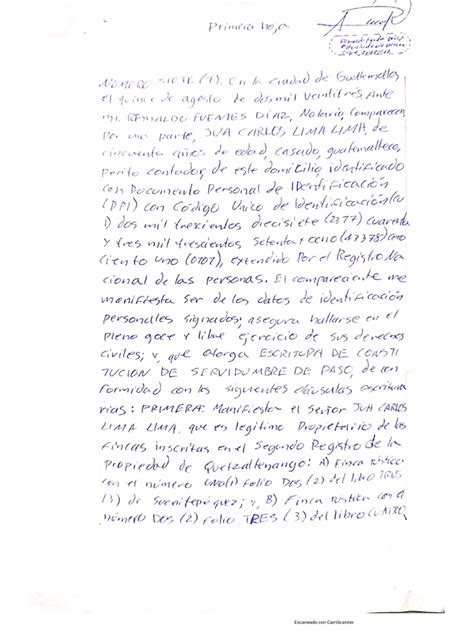 Primera hoja
NUMERO SIETE (7). En la ciudad de Guatemala,
el quince de agosto de dos mil veintitrés. Ante
mí, REYNALDO FUENTES DÍAZ, Notario, Comparecen,
Por una parte, JUA CARLOS LIMA LIMA, de
cincuenta años de edad, casado, guatemalteco,
perito contador, de este domicilio, identificado
con Documento Personal de IDentificación
(DPI) con Código Unico de Identificación (CU
I) dos mil trescientos diecisiete (2377) cuarenta
y tres mil trescientos setenta y ocho (43378) cero
ciento uno (0101), extendido Por el Registro Na
cional de las personas. El compareciente me
manifiesta ser de los datos de identificación
personales signados; asegura hallarse en el
pleno goce y libre ejercicio de sus derechos
civiles; y, que otorga ESCRITURA DE CONSTI
TUCION DE SERVIDUMBRE DE PASO, de con
formidad con las siguientes cláusulas escritura
rias: PRIMERA: Manifiesta el Señor JUA CARLOS
LIMA LIMA, que es legítimo Propietario de las
fincas inscritas en el Segundo Registro de la
Propiedad de Quetzaltenango: A) Finca rústica
con el número UNO(1) folio Dos (2) del libro TRES
(3) de Suchitepéquez; y, B) Finca Rústica con el
número Dos (2) folio TRES (3) del libro CUATRO,
Escaneado con CamScanner